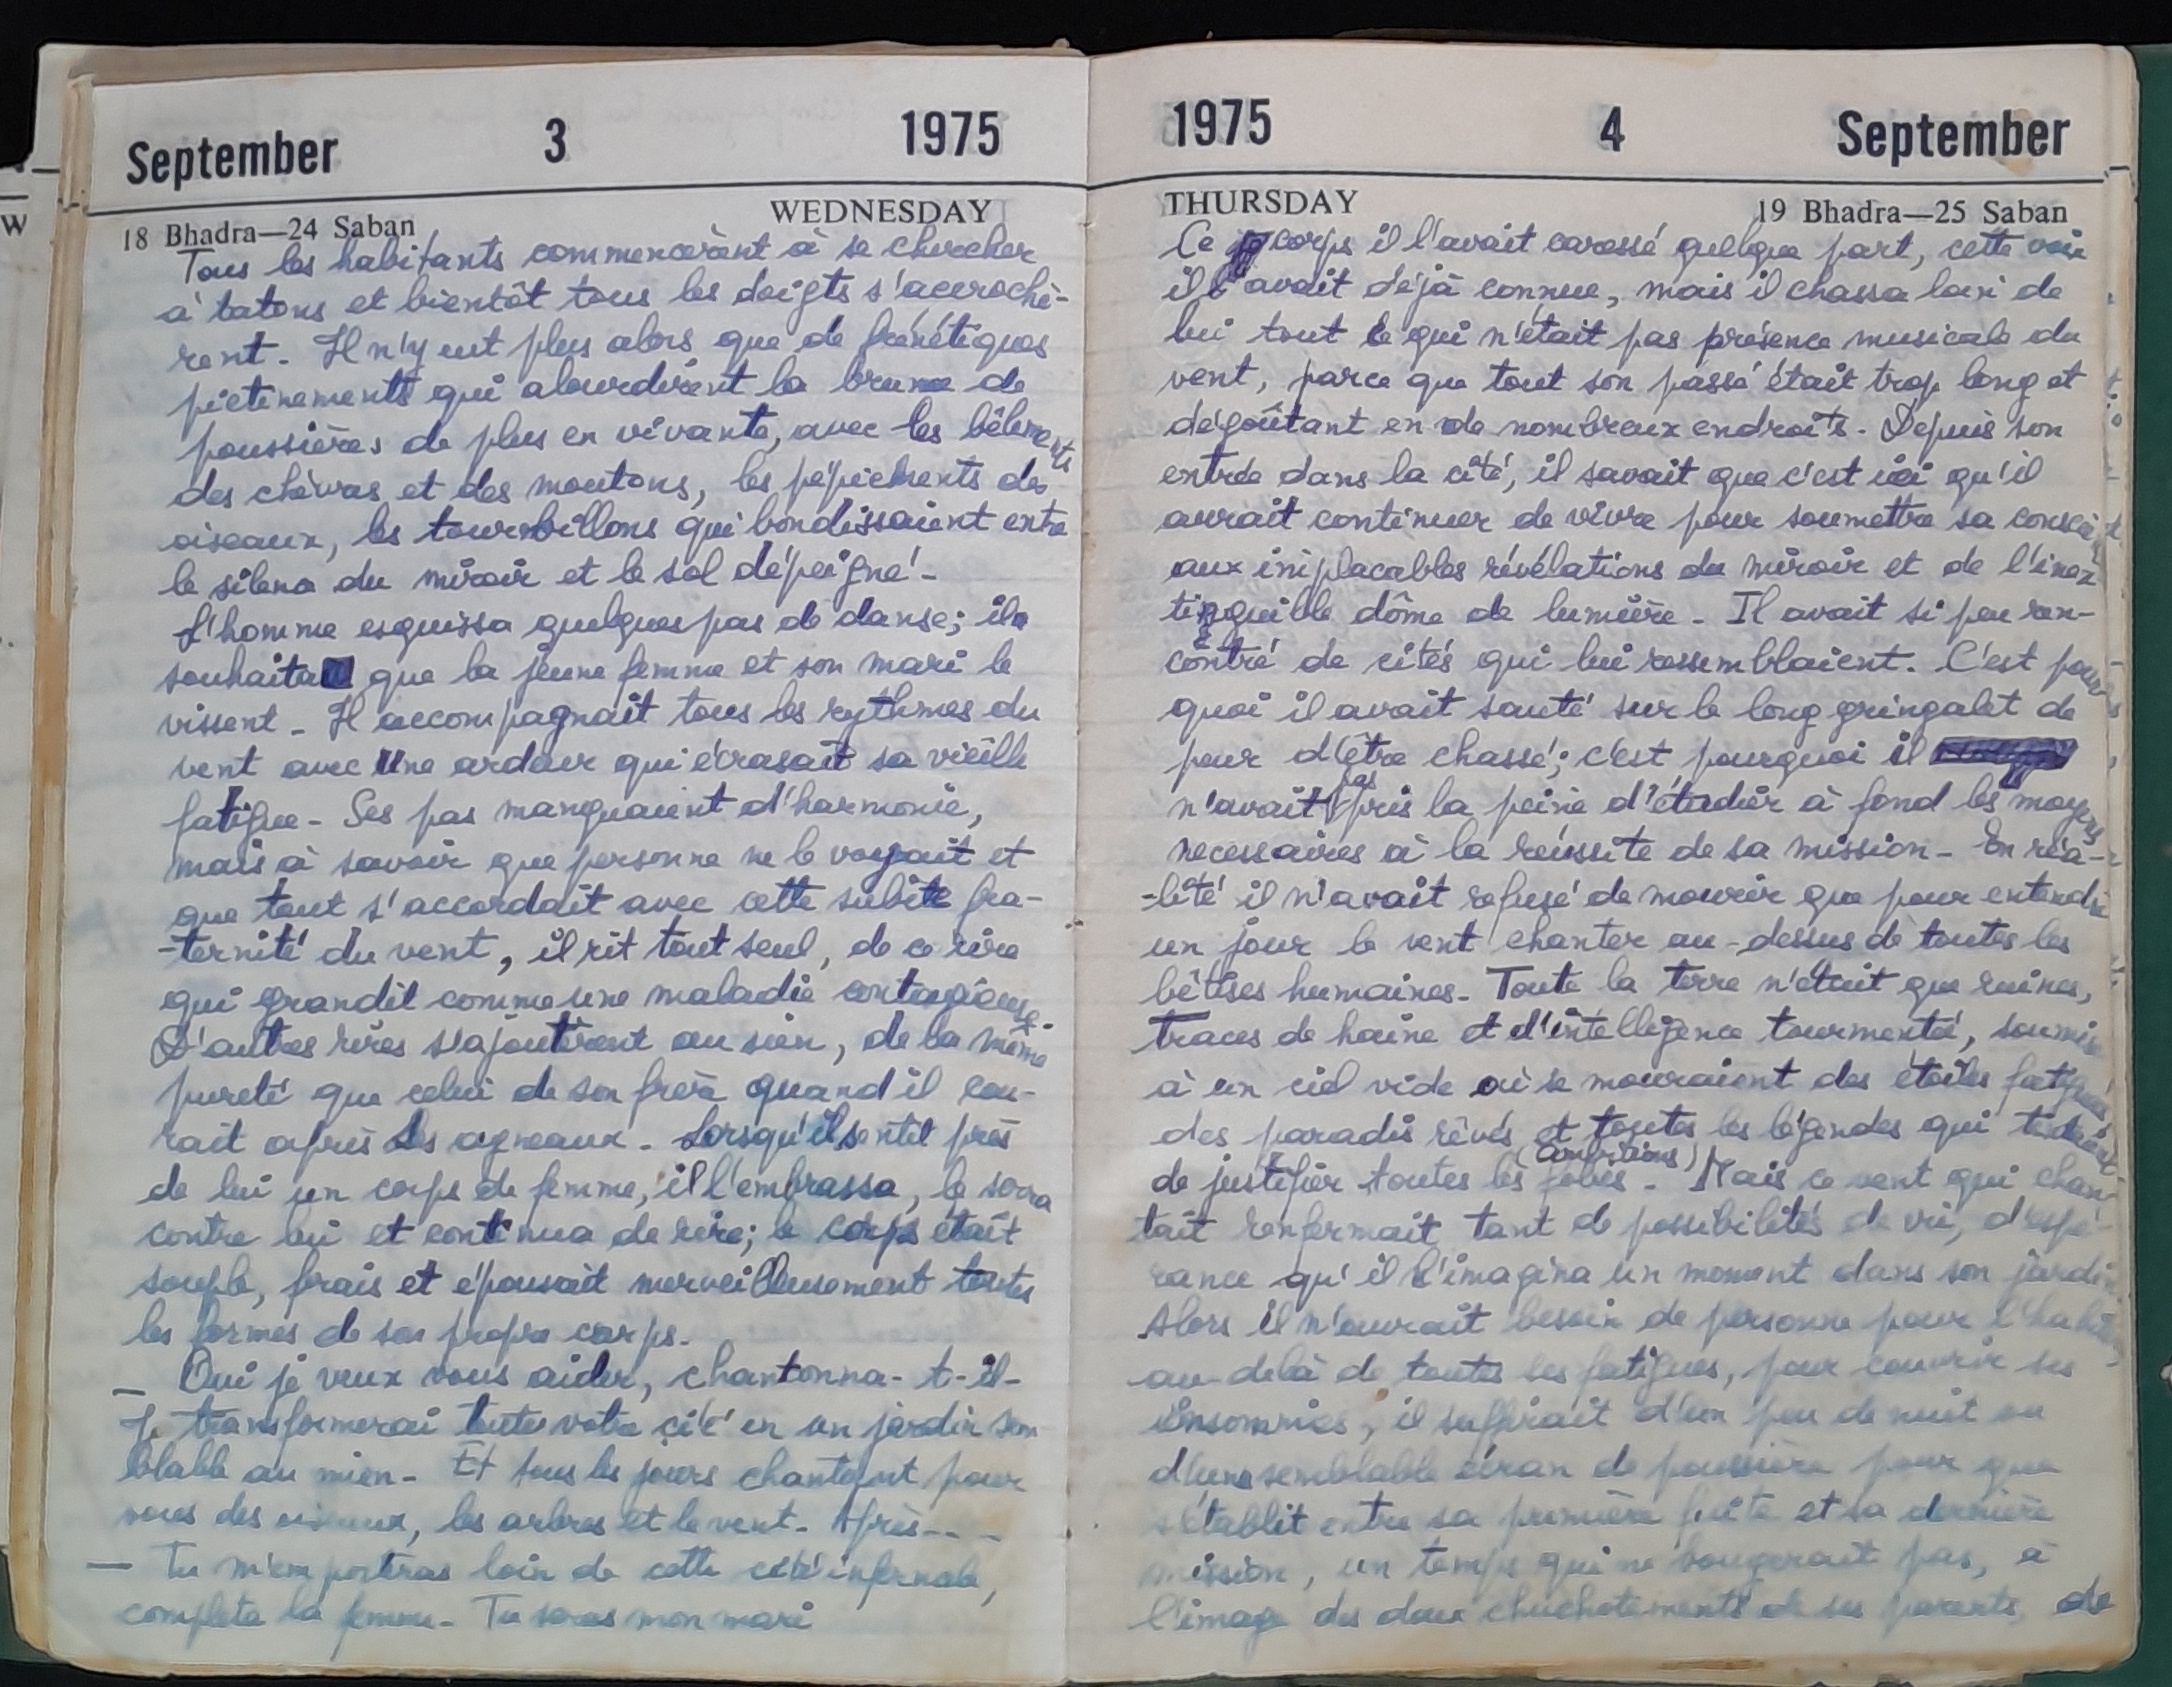 September 3 1975
18 Bhadra—24 Saban WEDNESDAY
Tous les habitants commencèrent à se chercher
à tatons et bientôt tous les doigts s'accrochè-
rent. Il n'y eut plus alors que de frénétiques
piétinements qui alourdirent la brume de
poussières de plus en vivante, avec les bêlements
des chèvres et des moutons, les pépiements des
oiseaux, les tourbillons qui bondissaient entre
le silence du miroir et le sol dépeigné.
L'homme esquissa quelques pas de danse; il
souhaita que la jeune femme et son mari le
vissent. Il accompagnait tous les rythmes du
vent avec une ardeur qui écrasait sa vieille
fatigue. Ses pas manquaient d'harmonie,
mais à savoir que personne ne le voyait et
que tout s'accordait avec cette subite fra-
-ternité du vent, il rit tout seul, de ce rire
qui grandit comme une maladie contagieuse.
D'autres rires s'ajoutèrent au sien, de la même
pureté que celui de son frère quand il cou-
rait après les agneaux. Lorsqu'il sentit près
de lui un corps de femme, il l'embrassa, le serra
contre lui et continua de rire; le corps était
souple, frais et épousait merveilleusement toutes
les formes de son propre corps.
— Oui je veux vous aider, chantonna-t-il.
Je transformerai toute votre cité en un jardin sem-
blable au mien. Et tous les jours chanteront pour
vous des oiseaux, les arbres et le vent. Après----
— Tu m'emporteras loin de cette cité infernale,
compléta la femme. Tu seras mon mari
1975 4 September
THURSDAY 19 Bhadra—25 Saban
Ce corps il l'avait caressé quelque part, cette voix
il l'avait déjà connue, mais il chassa loin de
lui tout ce qui n'était pas présence musicale du
vent, parce que tout son passé était trop long et
dégoûtant en de nombreux endroits. Depuis son
entrée dans la cité, il savait que c'est ici qu'il
aurait continuer de vivre pour soumettre sa
aux implacables révélations du miroir et de l'inex
tinguible dôme de lumière. Il avait si peu ren-
contré de cités qui lui ressemblaient. C'est pour
quoi il avait sauté sur le long gringalet de
peur d'être chassé; c'est pourquoi il
n'avait pas pris la peine d'étudier à fond les moyens
necessaires à la réussite de sa mission. En réa-
-lité il n'avait refusé de mourir que pour entendre
un jour le vent chanter au-dessus de toutes les
bêtises humaines. Toute la terre n'était que ruines,
traces de haine et d'intelligence tourmentée, soumise
à un ciel vide où se mouraient des étoiles fatiguées,
des paradis rêvés et toutes les légendes qui
(ambitions)
de justifier toutes les folies. Mais ce vent qui chan-
tait renfermait tant de possibilités de vie, d'espé-
rance qu'il l'imagina un moment dans son jardin.
Alors il n'aurait besoin de personne pour l'habiter,
au-delà de toutes les fatigues, pour couvrir ses
insomnies, il suffirait d'un peu de nuit ou
d'une semblable écran de poussière pour que
s'établit entre sa première fuite et sa dernière
mission, un temps qui ne bougerait pas, à
l'image des doux chuchotements de ses parents, de